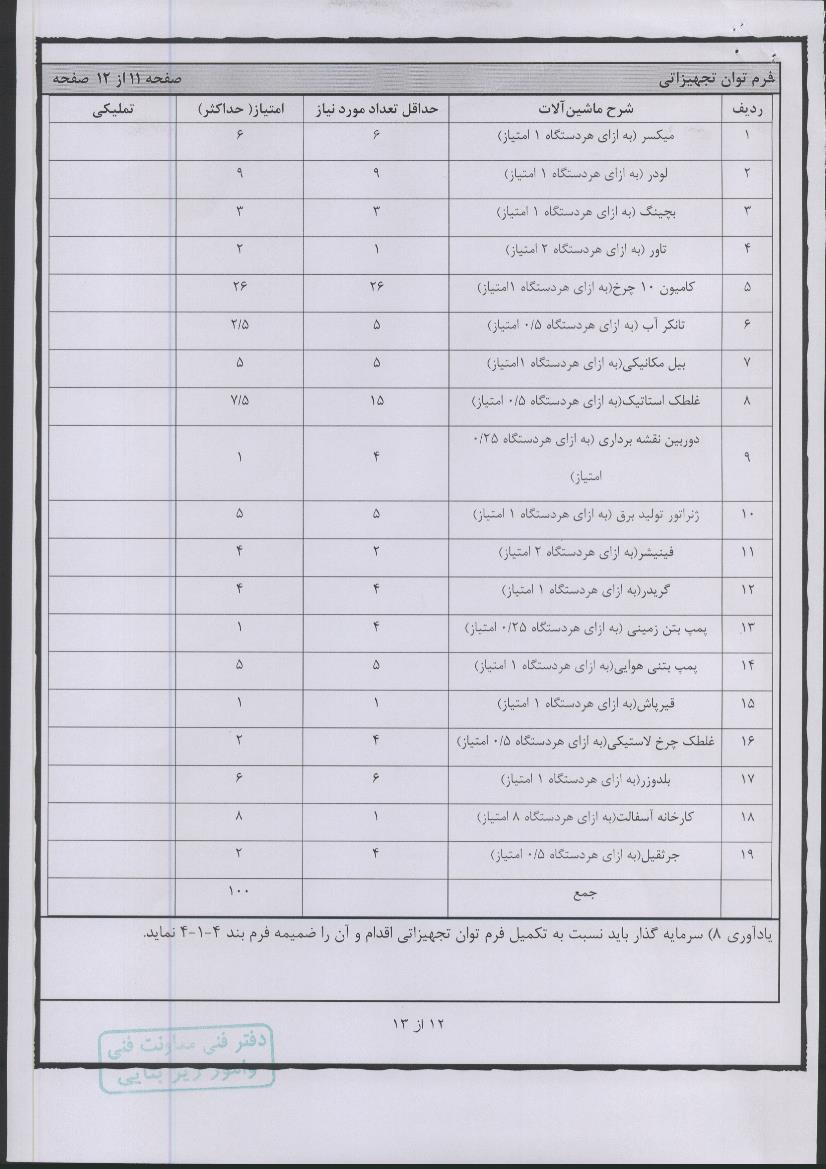 فرم توان تجهیزاتی صفحه ۱۱ از ۱۲ صفحه
ردیف شرح ماشین‌آلات حداقل تعداد مورد نیاز امتیاز( حداکثر) تملیکی
۱ میکسر (به ازای هردستگاه ۱ امتیاز) ۶ ۶
۲ لودر (به ازای هردستگاه ۱ امتیاز) ۹ ۹
۳ بچینگ (به ازای هردستگاه ۱ امتیاز) ۳ ۳
۴ تاور (به ازای هردستگاه ۲ امتیاز) ۱ ۲
۵ کامیون ۱۰ چرخ(به ازای هردستگاه ۱امتیاز) ۲۶ ۲۶
۶ تانکر آب (به ازای هردستگاه ۰/۵ امتیاز) ۵ ۲/۵
۷ بیل مکانیکی(به ازای هردستگاه ۱امتیاز) ۵ ۵
۸ غلطک استاتیک(به ازای هردستگاه ۰/۵ امتیاز) ۱۵ ۷/۵
دوربین نقشه برداری (به ازای هردستگاه ۰/۲۵
۹ ۴ ۱
امتیاز)
۱۰ ژنراتور تولید برق (به ازای هردستگاه ۱ امتیاز) ۵ ۵
۱۱ فینیشر(به ازای هردستگاه ۲ امتیاز) ۲ ۴
۱۲ گریدر(به ازای هردستگاه ۱ امتیاز) ۴ ۴
۱۳ پمپ بتن زمینی (به ازای هردستگاه ۰/۲۵ امتیاز) ۴ ۱
۱۴ پمپ بتنی هوایی(به ازای هردستگاه ۱ امتیاز) ۵ ۵
۱۵ قیرپاش(به ازای هردستگاه ۱ امتیاز) ۱ ۱
۱۶ غلطک چرخ لاستیکی(به ازای هردستگاه ۰/۵ امتیاز) ۴ ۲
۱۷ بلدوزر(به ازای هردستگاه ۱ امتیاز) ۶ ۶
۱۸ کارخانه آسفالت(به ازای هردستگاه ۸ امتیاز) ۱ ۸
۱۹ جرثقیل(به ازای هردستگاه ۰/۵ امتیاز) ۴ ۲
جمع ۱۰۰
یادآوری ۸) سرمایه گذار باید نسبت به تکمیل فرم توان تجهیزاتی اقدام و آن را ضمیمه فرم بند ۴-۱-۴ نماید.
۱۲ از ۱۳
دفتر فنی معاونت فنی
وامور زیر بنایی